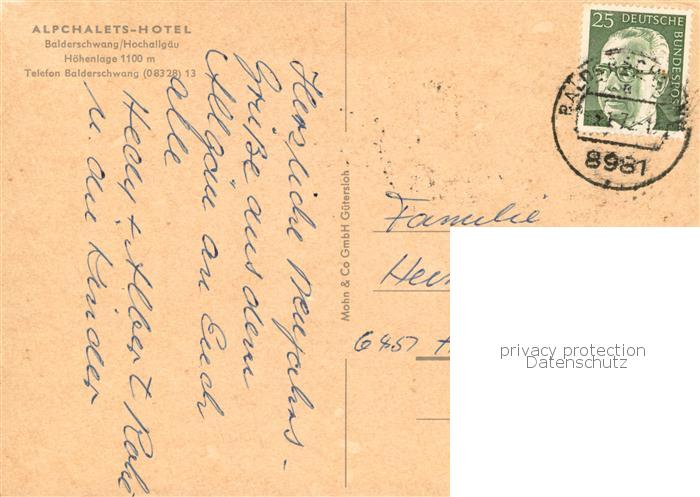 ALPCHALETS-HOTEL
Balderschwang/Hochallgäu
Höhenlage 1100 m
Telefon Balderschwang (08328) 13
Herzliche Neujahrs-
Grüße aus dem
Allgäu an Euch
alle
Hedy + Albert
u. die Kinder
Mohn & Co GmbH Gütersloh
25 DEUTSCHE BUNDESPOST
8981
Familie
6451
privacy protection
Datenschutz